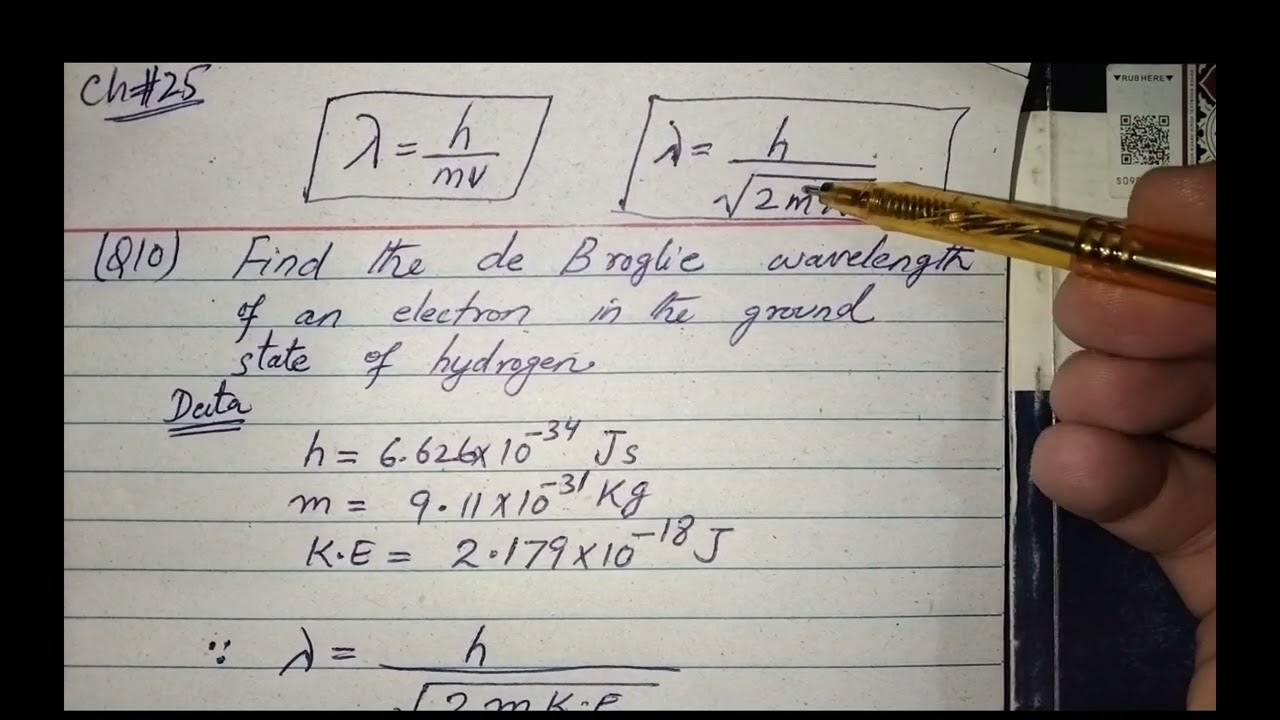 Ch#25
λ = h/mv
λ = h/√2m
(Q10) Find the de Broglie wavelength
of an electron in the ground
state of hydrogen.
Data
h = 6.626×10⁻³⁴ Js
m = 9.11×10⁻³¹ Kg
K.E = 2.179×10⁻¹⁸ J
∵ λ = h/√2mK.E
▼RUB HERE▼